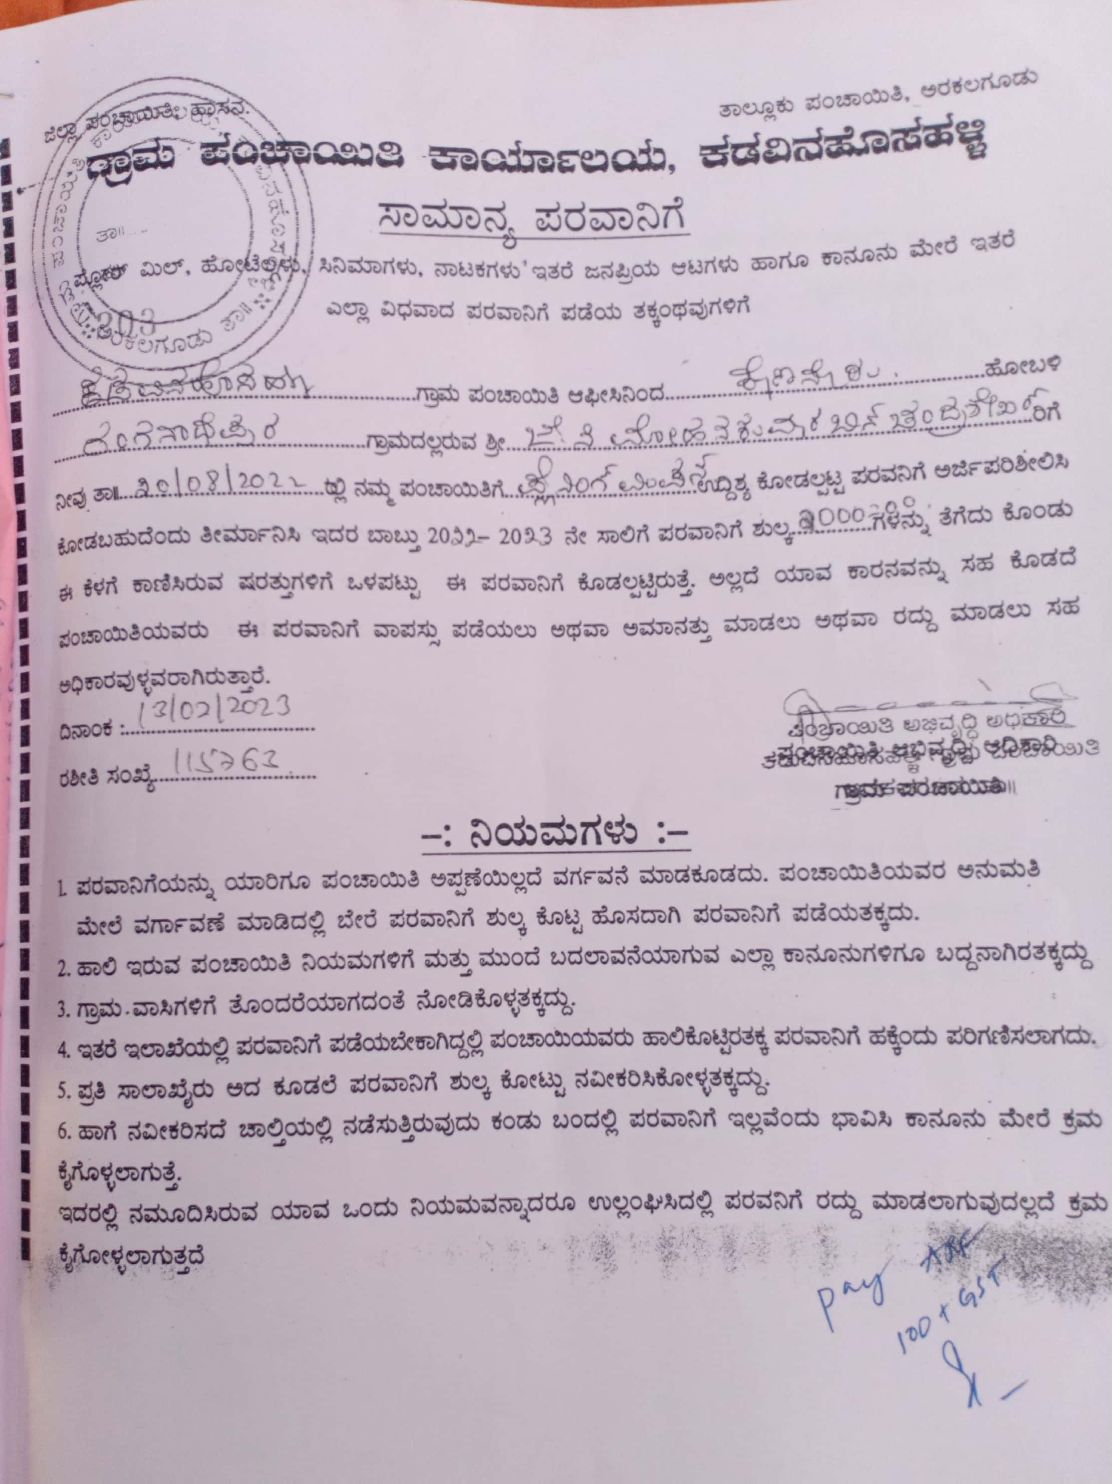 ಜಿಲ್ಲಾ ಪಂಚಾಯಿತಿ, ಹಾಸನ.
ತಾಲ್ಲೂಕು ಪಂಚಾಯಿತಿ, ಅರಕಲಗೂಡು
ಗ್ರಾಮ ಪಂಚಾಯಿತಿ ಕಾರ್ಯಾಲಯ, ಕಡವಿನಹೊಸಹಳ್ಳಿ
ಸಾಮಾನ್ಯ ಪರವಾನಿಗೆ
ಪ್ಲೋರ್ ಮಿಲ್, ಹೋಟೆಲ್ಗಳು, ಸಿನಿಮಾಗಳು, ನಾಟಕಗಳು ಇತರೆ ಜನಪ್ರಿಯ ಆಟಗಳು ಹಾಗೂ ಕಾನೂನು ಮೇರೆ ಇತರೆ
ಎಲ್ಲಾ ವಿಧವಾದ ಪರವಾನಿಗೆ ಪಡೆಯ ತಕ್ಕಂಥವುಗಳಿಗೆ
303
ಗ್ರಾಮ ಪಂಚಾಯಿತಿ ಆಫೀಸಿನಿಂದ ಹೋಬಳಿ
ರಂಗನಾಥಪುರ ಗ್ರಾಮದಲ್ಲರುವ ಶ್ರೀ ಮೋಹನಕುಮಾರ ಬಿನ್ ಚಂದ್ರಶೇಖರ್ ರಿಗೆ
ನೀವು ತಾ॥ 30/08/2022 ಲ್ಲಿ ನಮ್ಮ ಪಂಚಾಯಿತಿಗೆ ಉದ್ದಿಶ್ಯ ಕೋಡಲ್ಪಟ್ಟ ಪರವನಿಗೆ ಅರ್ಜಿಪರಿಶೀಲಿಸಿ
ಕೋಡಬಹುದೆಂದು ತೀರ್ಮಾನಿಸಿ ಇದರ ಬಾಬ್ತು 2022- 2023 ನೇ ಸಾಲಿಗೆ ಪರವಾನಿಗೆ ಶುಲ್ಕ ಗಳನ್ನು ತೆಗೆದು ಕೊಂಡು
ಈ ಕೆಳಗೆ ಕಾಣಿಸಿರುವ ಷರತ್ತುಗಳಿಗೆ ಒಳಪಟ್ಟು ಈ ಪರವಾನಿಗೆ ಕೊಡಲ್ಪಟ್ಟಿರುತ್ತೆ. ಅಲ್ಲದೆ ಯಾವ ಕಾರನವನ್ನು ಸಹ ಕೊಡದೆ
ಪಂಚಾಯಿತಿಯವರು ಈ ಪರವಾನಿಗೆ ವಾಪಸ್ಸು ಪಡೆಯಲು ಅಥವಾ ಅಮಾನತ್ತು ಮಾಡಲು ಅಥವಾ ರದ್ದು ಮಾಡಲು ಸಹ
ಅಧಿಕಾರವುಳ್ಳವರಾಗಿರುತ್ತಾರೆ.
ದಿನಾಂಕ : 13/02/2023
ರಶೀತಿ ಸಂಖ್ಯೆ 115763
ಪಂಚಾಯಿತಿ ಅಭಿವೃದ್ಧಿ ಅಧಿಕಾರಿ
ಪಂಚಾಯಿತಿ ಅಭಿವೃದ್ಧಿ ಅಧಿಕಾರಿ
ಗ್ರಾಮ ಪಂಚಾಯಿತಿ
-: ನಿಯಮಗಳು :-
1. ಪರವಾನಿಗೆಯನ್ನು ಯಾರಿಗೂ ಪಂಚಾಯಿತಿ ಅಪ್ಪಣೆಯಿಲ್ಲದೆ ವರ್ಗವನೆ ಮಾಡಕೂಡದು. ಪಂಚಾಯಿತಿಯವರ ಅನುಮತಿ
ಮೇಲೆ ವರ್ಗಾವಣೆ ಮಾಡಿದಲ್ಲಿ ಬೇರೆ ಪರವಾನಿಗೆ ಶುಲ್ಕ ಕೊಟ್ಟ ಹೊಸದಾಗಿ ಪರವಾನಿಗೆ ಪಡೆಯತಕ್ಕದು.
2. ಹಾಲಿ ಇರುವ ಪಂಚಾಯಿತಿ ನಿಯಮಗಳಿಗೆ ಮತ್ತು ಮುಂದೆ ಬದಲಾವನೆಯಾಗುವ ಎಲ್ಲಾ ಕಾನೂನುಗಳಿಗೂ ಬದ್ದನಾಗಿರತಕ್ಕದ್ದು
3. ಗ್ರಾಮ ವಾಸಿಗಳಿಗೆ ತೊಂದರೆಯಾಗದಂತೆ ನೋಡಿಕೊಳ್ಳತಕ್ಕದ್ದು.
4. ಇತರೆ ಇಲಾಖೆಯಲ್ಲಿ ಪರವಾನಿಗೆ ಪಡೆಯಬೇಕಾಗಿದ್ದಲ್ಲಿ ಪಂಚಾಯಿಯವರು ಹಾಲಿಕೊಟ್ಟಿರತಕ್ಕ ಪರವಾನಿಗೆ ಹಕ್ಕೆಂದು ಪರಿಗಣಿಸಲಾಗದು.
5. ಪ್ರತಿ ಸಾಲಾಖೈರು ಅದ ಕೂಡಲೆ ಪರವಾನಿಗೆ ಶುಲ್ಕ ಕೋಟ್ಟು ನವೀಕರಿಸಿಕೋಳ್ಳತಕ್ಕದ್ದು.
6. ಹಾಗೆ ನವೀಕರಿಸದೆ ಚಾಲ್ತಿಯಲ್ಲಿ ನಡೆಸುತ್ತಿರುವುದು ಕಂಡು ಬಂದಲ್ಲಿ ಪರವಾನಿಗೆ ಇಲ್ಲವೆಂದು ಭಾವಿಸಿ ಕಾನೂನು ಮೇರೆ ಕ್ರಮ
ಕೈಗೊಳ್ಳಲಾಗುತ್ತೆ.
ಇದರಲ್ಲಿ ನಮೂದಿಸಿರುವ ಯಾವ ಒಂದು ನಿಯಮವನ್ನಾದರೂ ಉಲ್ಲಂಘಿಸಿದಲ್ಲಿ ಪರವನಿಗೆ ರದ್ದು ಮಾಡಲಾಗುವುದಲ್ಲದೆ ಕ್ರಮ
ಕೈಗೋಳ್ಳಲಾಗುತ್ತದೆ
pay
100 + GST